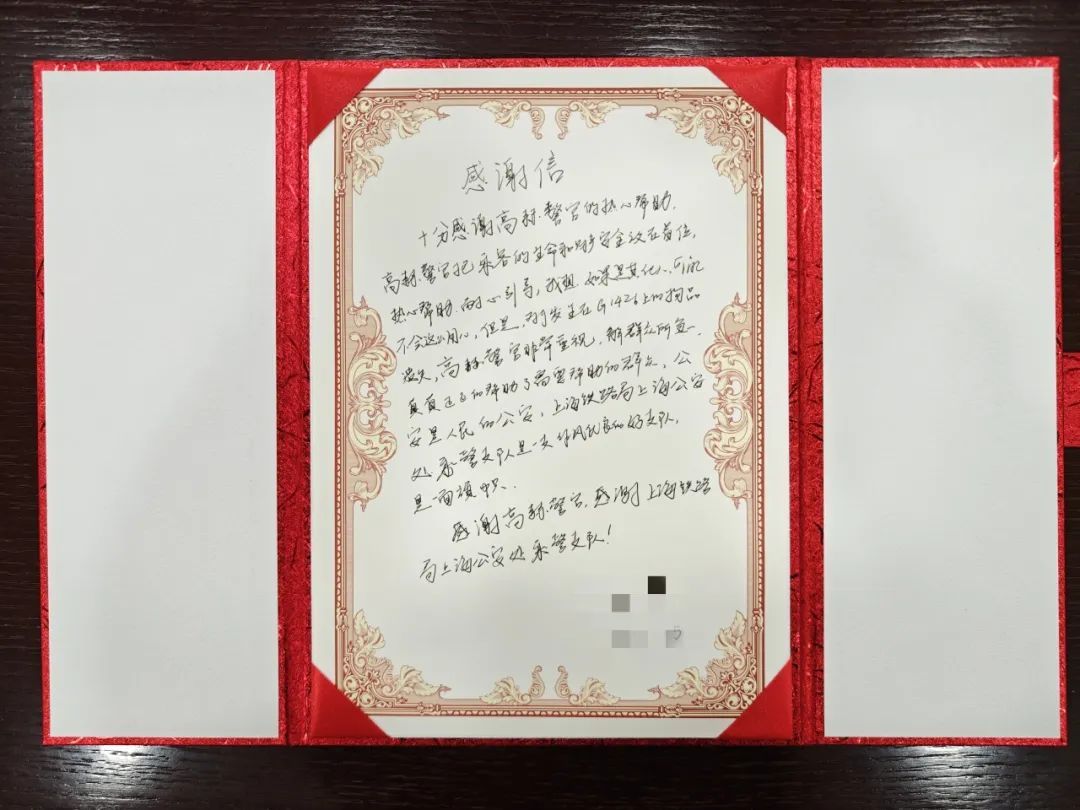 感谢信
十分感谢高标警官的热心帮助.
高标警官把乘客的生命和财产安全放在首位,
热心帮助.耐心引导,我想.如果是其他人,可能
不会这么用心,但是,对于发生在G1426上的物品
遗失,高标警官非常重视,解群众所急.
真真正正的帮助了需要帮助的群众,公
安是人民的公安,上海铁路局上海公安
处乘警支队是一支作风优良的好支队,
是一面旗帜.
感谢高标警官.感谢上海铁路
局上海公安处乘警支队!